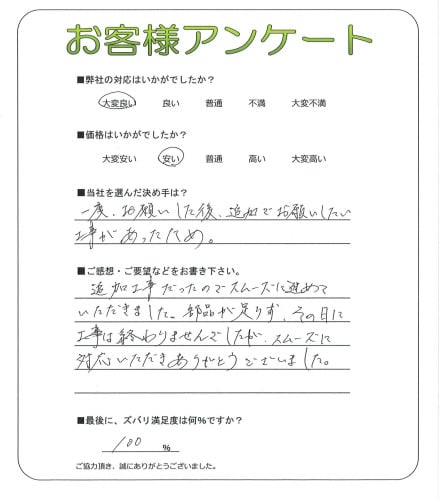 お客様アンケート
■弊社の対応はいかがでしたか？
大変良い 良い 普通 不満 大変不満
■価格はいかがでしたか？
大変安い 安い 普通 高い 大変高い
■当社を選んだ決め手は？
一度、お願いした後、追加でお願いしたい
工事があったため。
■ご感想・ご要望などをお書き下さい。
追加工事だったのでスムーズに進めて
いただきました。部品が足りず、その日に
工事は終わりませんでしたが、スムーズに
対応いただきありがとうございました。
■最後に、ズバリ満足度は何%ですか？
100 %
ご協力頂き、誠にありがとうございました。